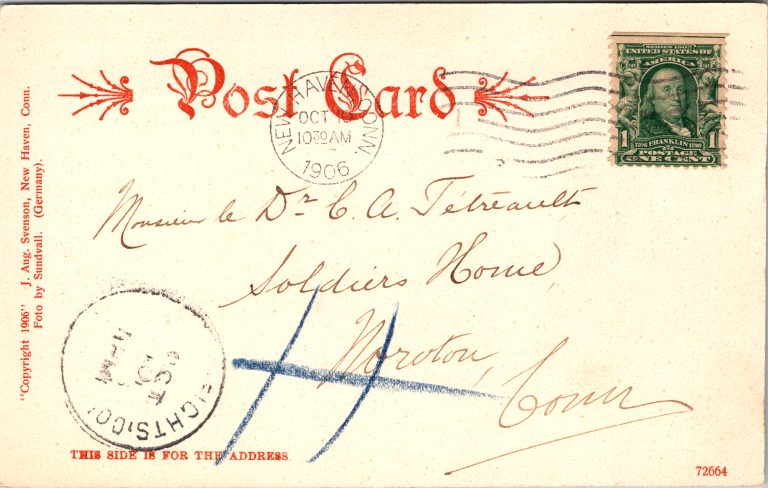 Post Card
NEW HAVEN, CONN.
OCT
10 30 AM
1906
SERIES 1902
UNITED STATES OF
AMERICA
1 1706 FRANKLIN 1790 1
POSTAGE
ONE CENT
Monsieur le Dr C. A. Tétreault
Soldiers Home
Noroton,
Conn
"Copyright 1906" J. Aug. Svenson, New Haven, Conn.
Foto by Sundvall. (Germany).
OCT
THIS SIDE IS FOR THE ADDRESS.
72664